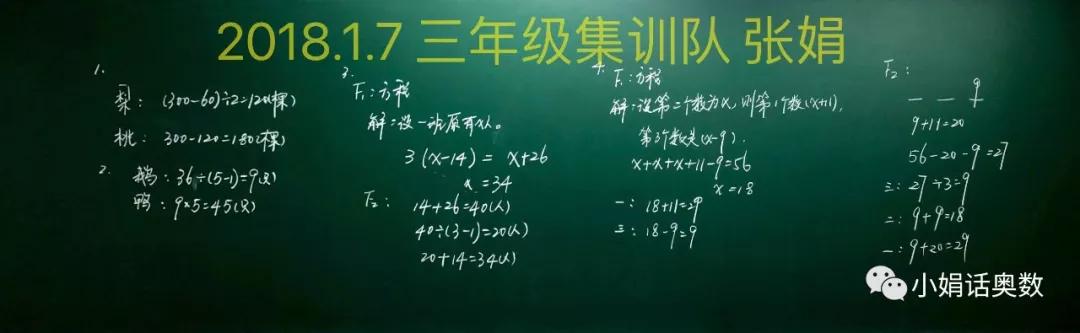 2018.1.7 三年级集训队 张娟
1.
梨: (300-60)÷2=120(棵)
桃: 300-120=180(棵)
2.
鹅: 36÷(5-1)=9(只)
鸭: 9×5=45(只)
3.
F₁:方程
解:设一班原有x人。
3(x-14) = x+26
x=34
F₂: 14+26=40(人)
40÷(3-1)=20(人)
20+14=34(人)
4.
F₁:方程
解:设第二个数为x,则第1个数(x+11),
第3个数为(x-9).
x+x+x+11-9=56
x=18
一: 18+11=29
三: 18-9=9
F₂:
9
— — —
9+11=20
56-20-9=27
三: 27÷3=9
二: 9+9=18
一: 9+20=29
小娟话奥数